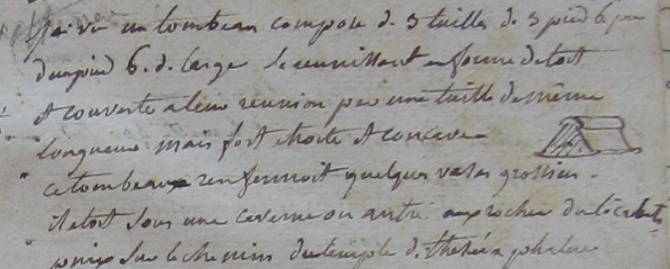 J'ai vu un tombeau composé de 3 tuilles de 3 pied 6 po
d'un pied 6. d. large se reunissant en forme de toit
et couverte a leur reunion par une tuille de même
longueur mais fort etroite et concave
ce tombeau renfermoit quelques vases grossiers.
il etoit sous une caverne ou antre aux rochers du
sur le chemin du temple d.